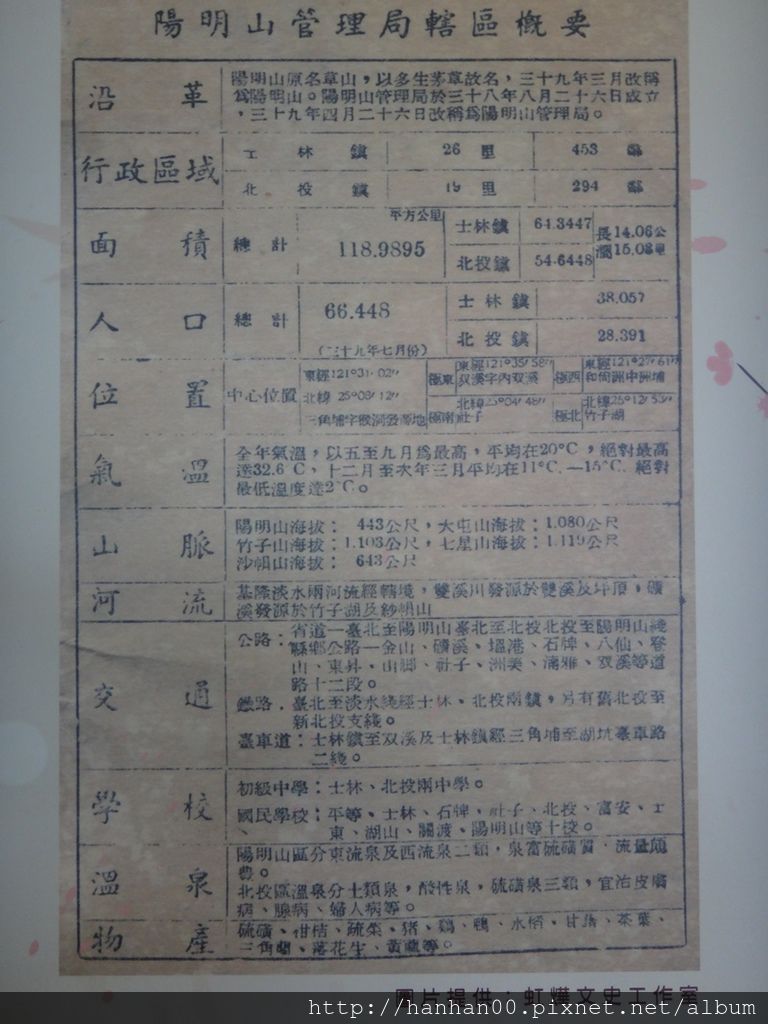 陽明山管理局轄區概要
沿革
陽明山原名草山，以多生茅草故名，三十九年三月改稱
爲陽明山。陽明山管理局於三十八年八月二十六日成立
，三十九年四月二十六日改稱爲陽明山管理局。
行政區域
士林鎮 26里 453鄰
北投鎮 19里 294鄰
面積
總計
平方公里
118.9895
士林鎮 64.3447
北投鎮 54.6448
長14.06公
濶15.08里
人口
總計
66.448
(三十九年七月份)
士林鎮 38.057
北投鎮 28.391
位置
中心位置
東經121°31′02″
北緯25°08′12″
極東
東經121°35′58″
双溪字內双溪
極西
東經121°27′61″
和尚洲中洲埔
極南
北緯25°04′48″
社子
極北
北緯25°12′53″
竹子湖
氣溫
全年氣溫，以五至九月爲最高，平均在20°C，絕對最高
達32.6°C，十二月至次年三月平均在11°C.—15°C.絕對
最低溫度達2°C。
山脈
陽明山海拔：443公尺，大屯山海拔：1.080公尺
竹子山海拔：1.103公尺，七星山海拔：1.119公尺
沙帽山海拔：643公尺
河流
基隆淡水兩河流經轄境，雙溪川發源於雙溪及坪頂，礦
溪發源於竹子湖及紗帽山
交通
公路：省道—臺北至陽明山臺北至北投北投至陽明山綫
縣鄉公路—金山、礦溪、塭港、石牌、八仙、
山、東昇、山脚、社子、洲美、湳雅、双溪等道
路十二段。
鐵路：臺北至淡水綫經士林、北投兩鎮，另有舊北投至
新北投支綫。
臺車道：士林鎮至双溪及士林鎮經三角埔至湖坑臺車路
二綫。
學校
初級中學：士林、北投兩中學。
國民學校：平等、士林、石牌、社子、北投、富安、士
東、湖山、關渡、陽明山等十校。
溫泉
陽明山區分東流泉及西流泉二類，泉富硫磺質，流量頗
豊。
北投區溫泉分土類泉，酸性泉，硫磺泉三類，宜治皮膚
病、腺病、婦人病等。
物產
硫磺、柑桔、蔬菜、猪、鷄、鴨、水稻、甘藷、茶葉、
三角藺、落花生、黃 等。
圖片提供：虹燁文史工作室
http://hanhan00.pixnet.net/album